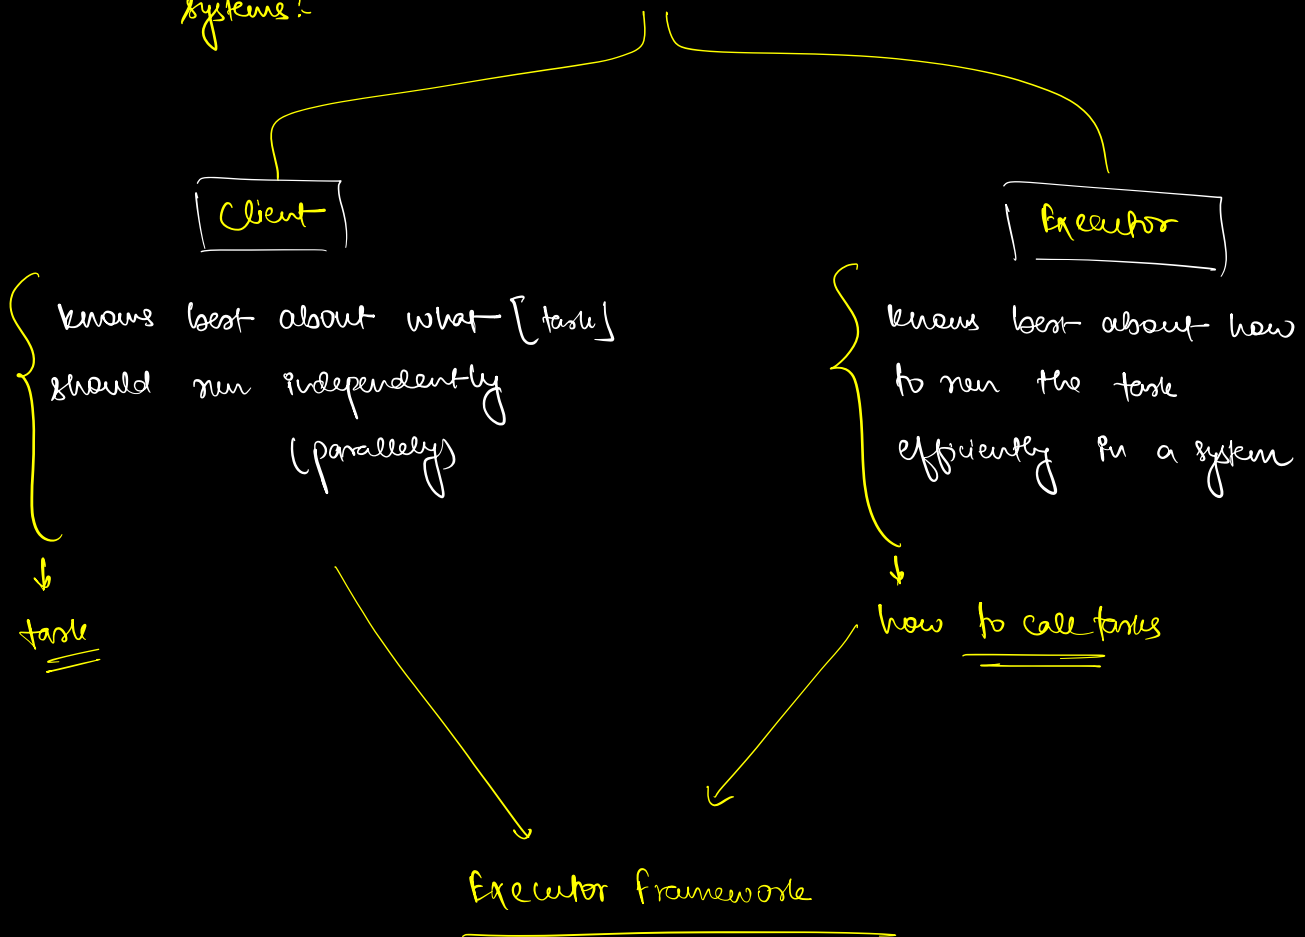 systems:-
Client
Executor
knows best about what [task]
should run independently
(parallely)
knows best about how
to run the task
efficiently in a system
task
how to call tasks
Executor Framework